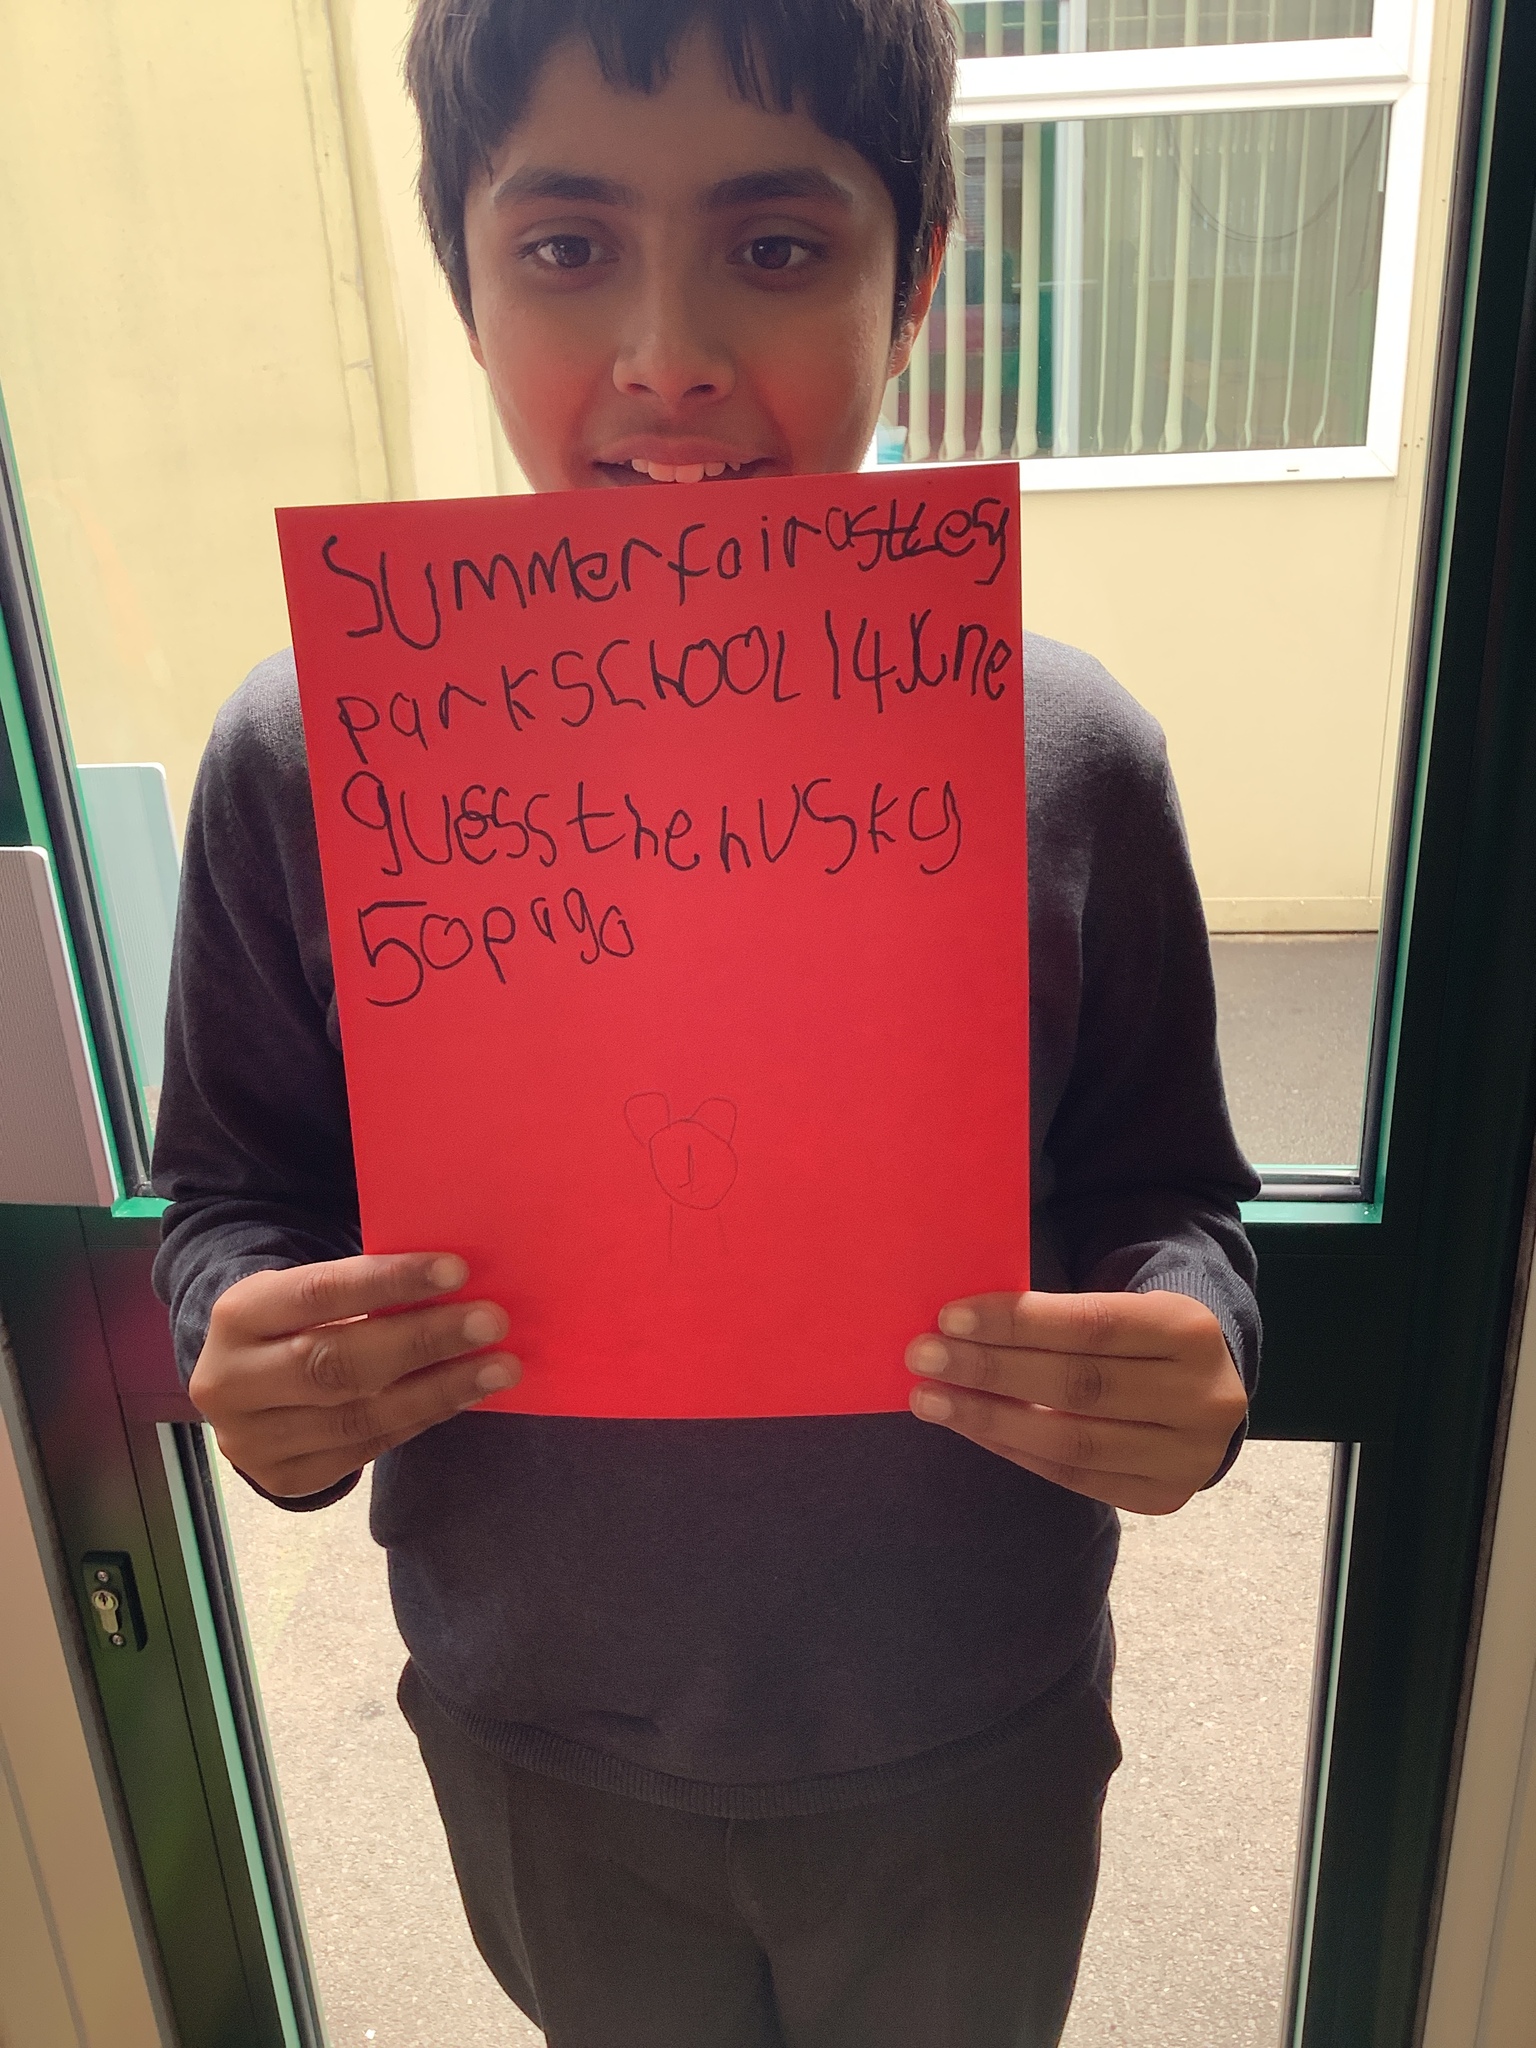 Summer fair astley
park school 14 June
guess the husky
50p a go